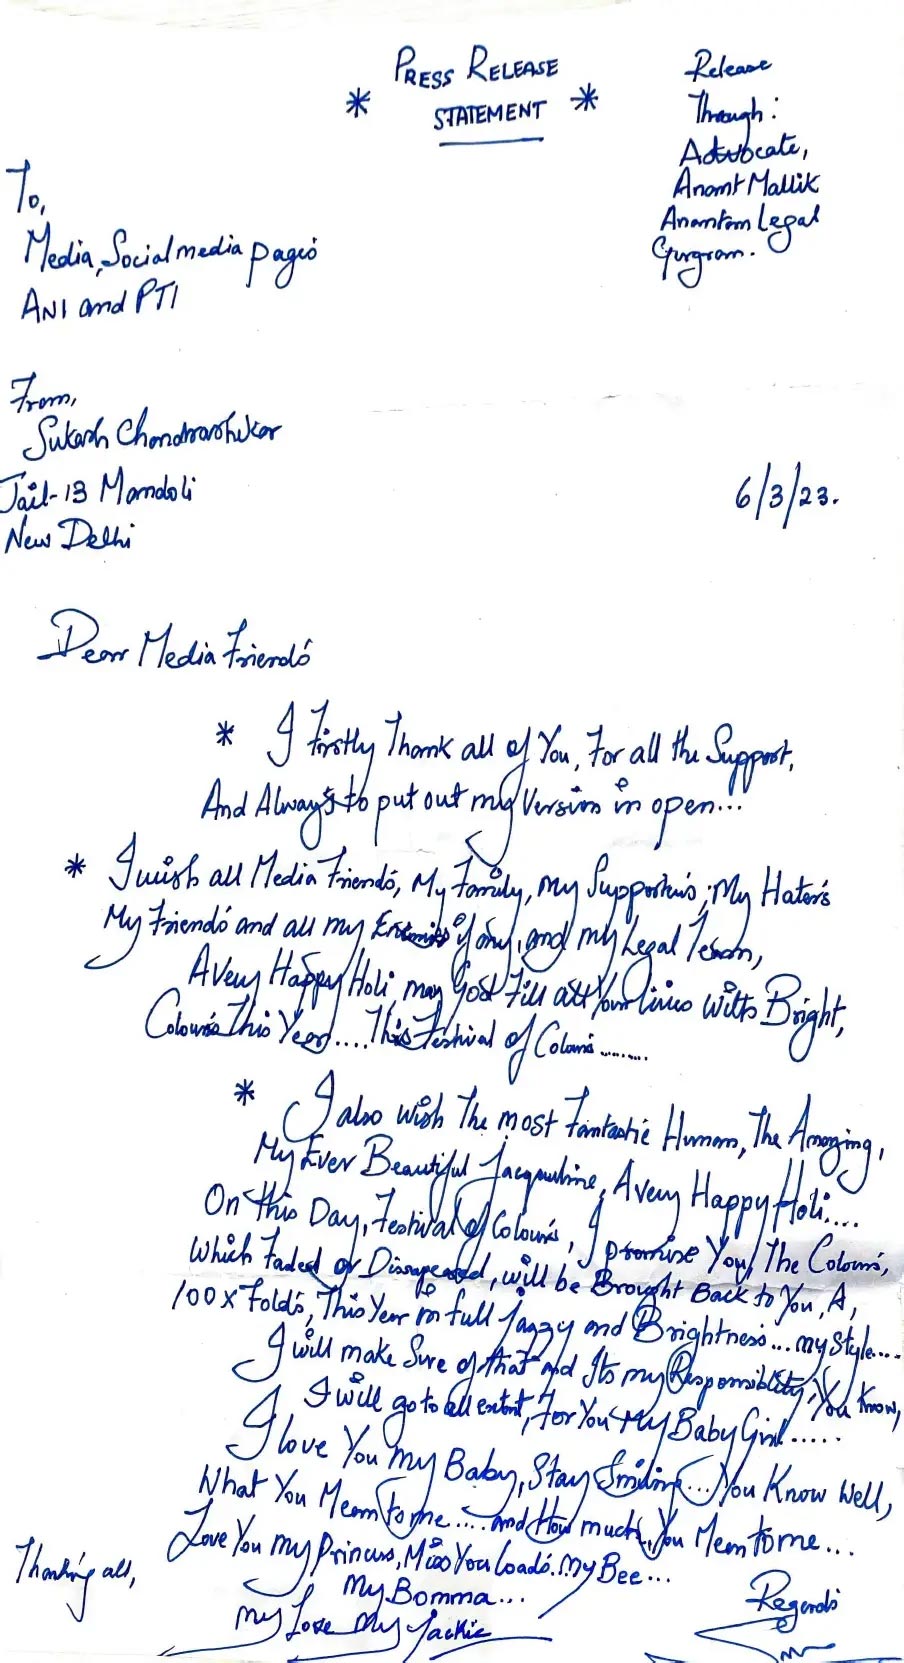 * PRESS RELEASE STATEMENT *
Release
Through:
Advocate,
Anant Mallik
Anantam Legal
Gurgram.
To,
Media, Social media pages
ANI and PTI
From,
Sukash Chandrashekar
Jail-13 Mandoli
New Delhi
6/3/23.
Dear Media Friends
* I Firstly Thank all of You, For all the Support,
And Always to put out my Version in open...
* I wish all Media Friends, My Family, My Supporters, My Haters
My Friends and all my Enemies if any, and my Legal Team,
A Very Happy Holi, may God Fill all Your lives With Bright,
Colours This Year.... This Festival of Colours.........
* I also wish The most Fantastic Human, The Amazing,
My Ever Beautiful Jacqueline, A Very Happy Holi....
On This Day, Festival of Colours, I promise You, The Colours,
Which Faded or Dissapeared, will be Brought Back to You, A,
100 x Folds, This Year in full Jazzy and Brightness... my Style....
I will make Sure of that and Its my Responsiblity, You Know,
I will go to all extent, For You My Baby Girl.....
I love You my Baby, Stay Smiling... You Know Well,
What You Mean to me.... and How much You Mean to me...
Love You my Princess, Miss You Loads. My Bee...
My Bomma...
My Love My Jackie
Thanking all,
Regards